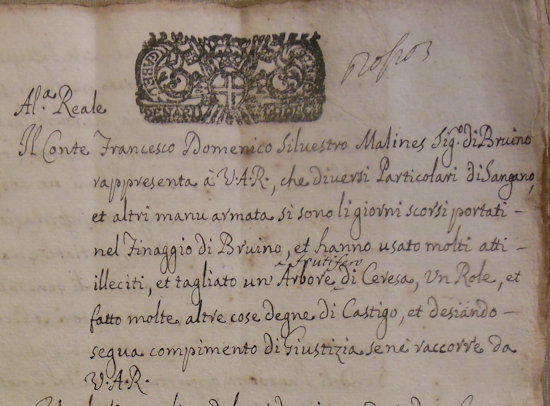 Al.ª Reale
Il Conte Francesco Domenico Siluestro Malines Sig.ʳᵉ di Bruino
rappresenta à V.A.R., che diversi Particolari di Sangano,
et altri manu armata si sono li giorni scorsi portati -
nel Finaggio di Bruino, et hanno usato molti atti -
frutifero
illeciti, et tagliato un' Arbore di Ceresa, Un Role, et
fatto molte altre cose degne di Castigo, et desiando -
segua compimento di Giustizia se ne raccorre da
V.A.R.